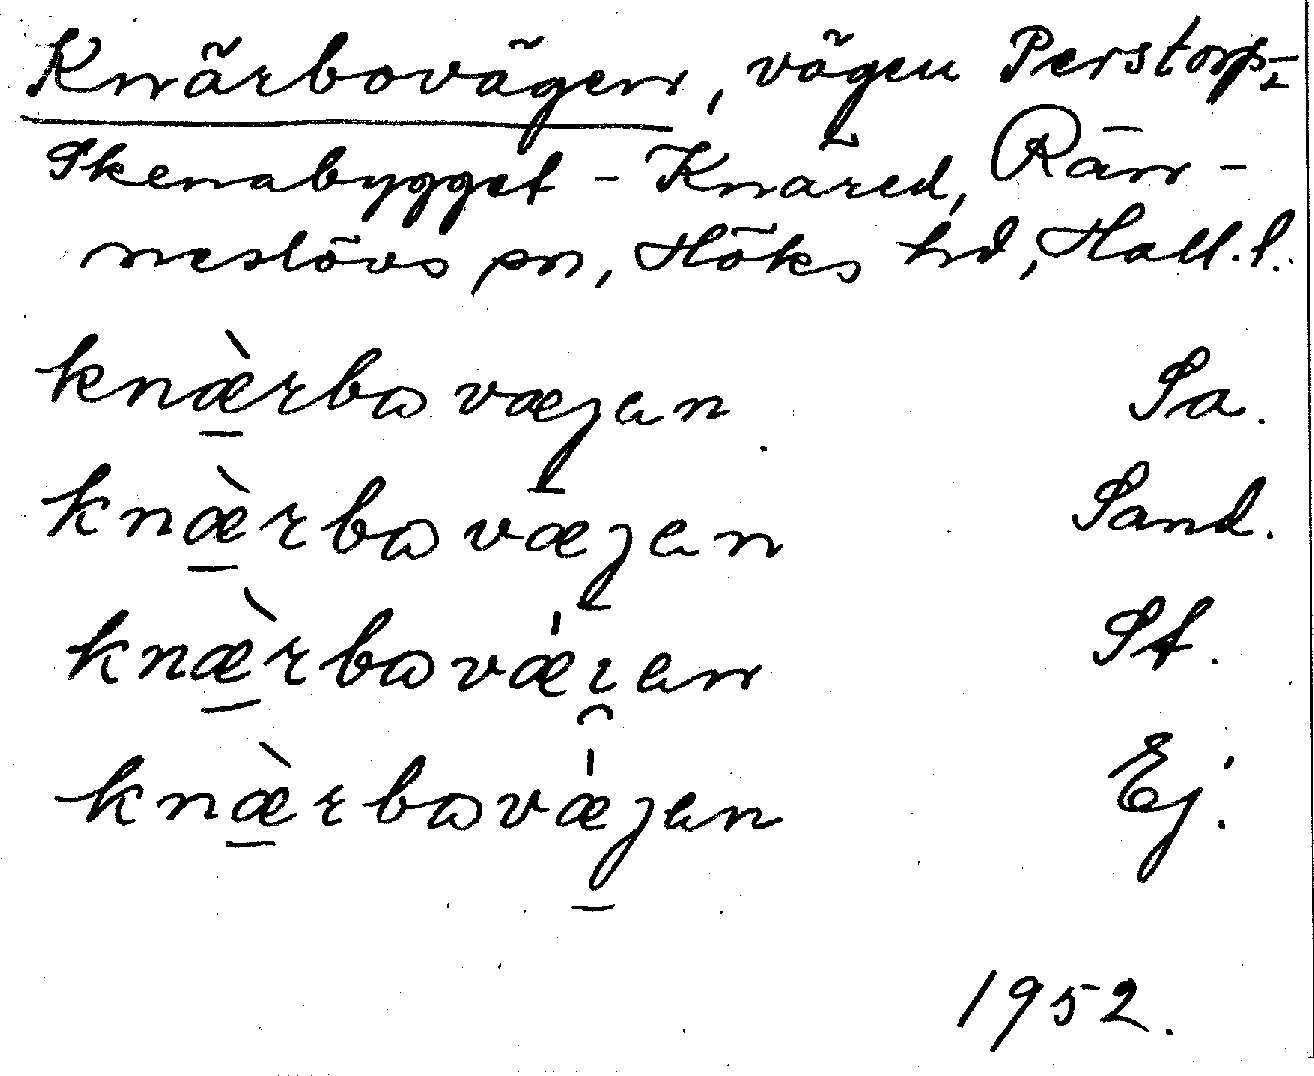 Knärbovägen, vägen Perstorp-
Skenabygget - Knäred, Rän-
neslövs sn, Höks hd, Hall.l.
knæ̀rbɷvæjɐn Sa.
knæ̀rbɷvæjɐn Sand.
knæ̀rbɷvǽɪ̯ɐn St.
knæ̀rbɷvǽjɐn Ej.
1952.